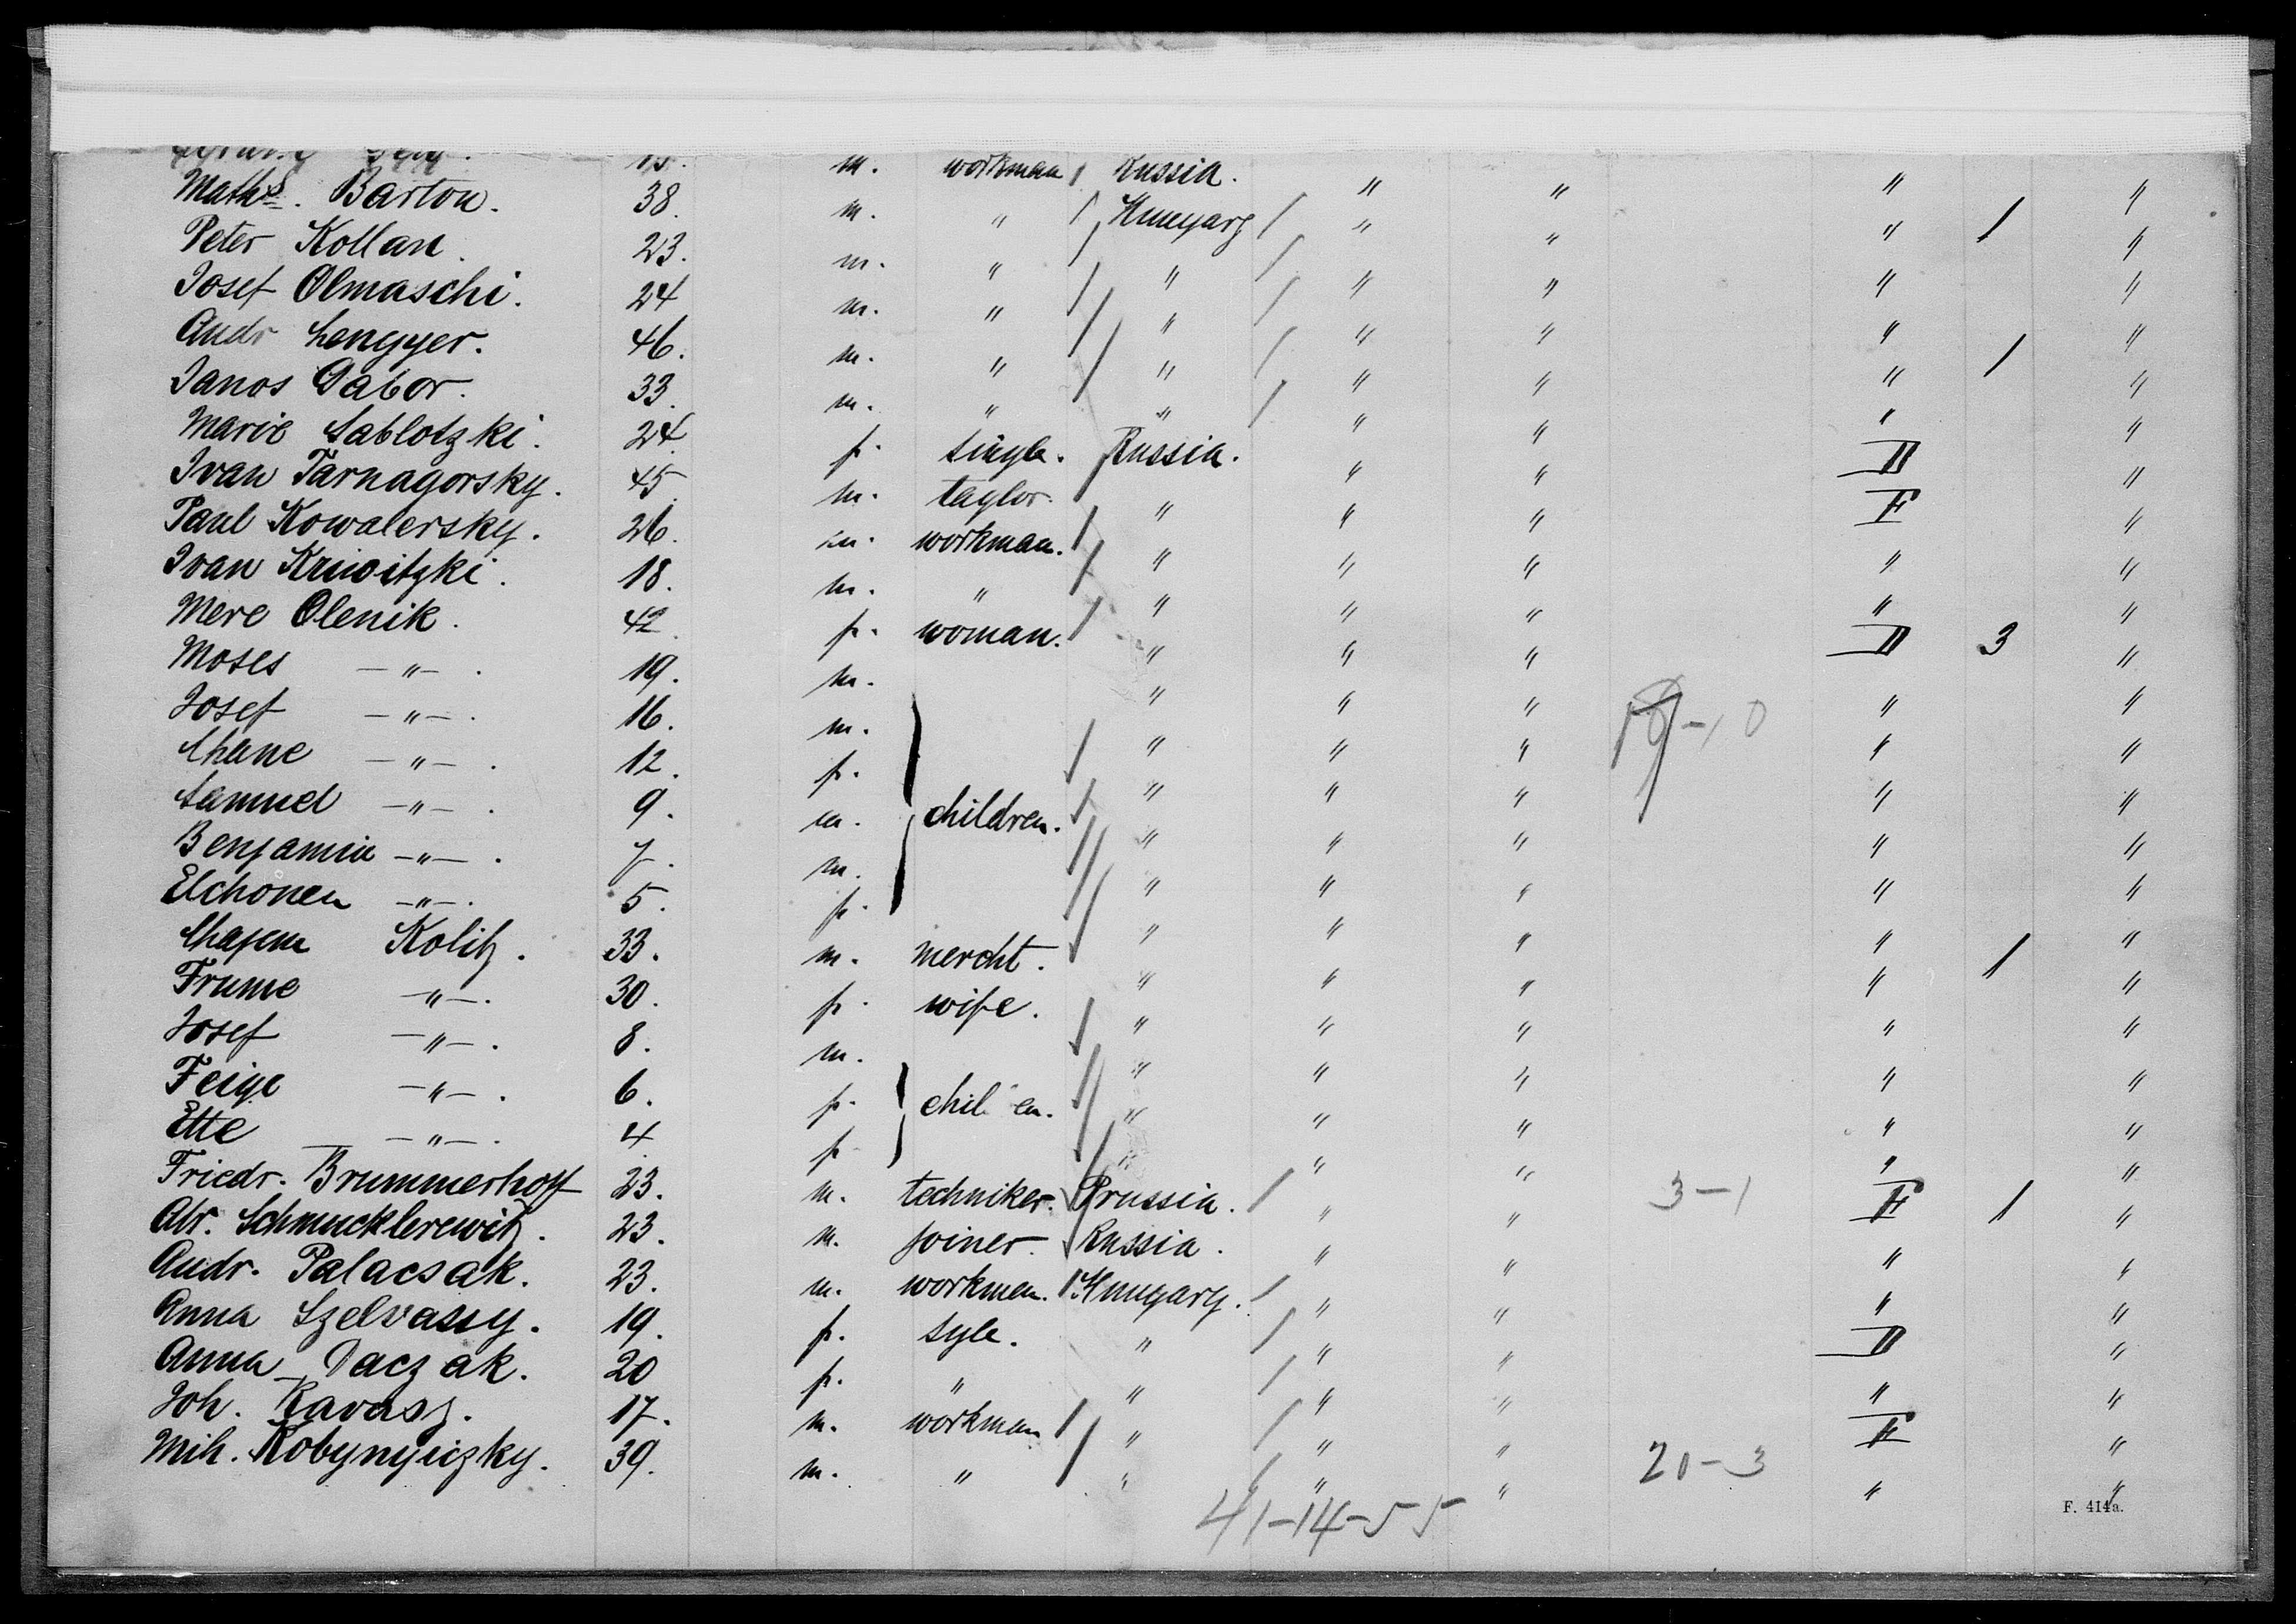 15. m. workman Russia.
Maths. Barton. 38. m. " Hungary " " " 1 "
Peter Kollan. 23. m. " " " " " "
Josef Olmaschi. 24 m. " " " " " "
Andr Lengyer. 46. m. " " " " " 1 "
Janos Gabor. 33. m. " " " " " "
Marie Sablotzki. 24. f. single. Russia. " " II "
Ivan Tarnagorsky. 45. m. taylor. " " " F "
Paul Kowalersky. 26. m. workman. " " " " "
Ivan Kriwitzki. 18. m. " " " " " "
Mere Olenik. 42. f. woman. " " " II 3 "
Moses —"—. 19. m. " " " " "
Josef —"—. 16. m. " " " 10 " "
Chane —"—. 12. f. " " " " "
Samuel —"—. 9. m. children. " " " " "
Benjamin —"—. 7. m. " " " " "
Elchonen —"—. 5. f. " " " " "
Chajem Kolitz. 33. m. mercht. " " " " 1 "
Frume —"—. 30. f. wife. " " " " "
Josef —"—. 8. m. " " " " "
Feige —"—. 6. f. chil en. " " " " "
Ette —"—. 4 f. " " " " "
Friedr. Brummerhoff 23. m. techniker. Prussia. " " 3-1 F 1 "
Abr. Schmucklerewitz. 23. m. joiner. Russia. " " " "
Andr. Palacsak. 23. m. workmen. Hungary. " " " "
Anna Szelvassy. 19. f. sgle. " " " II "
Anna Daczak. 20 f. " " " " " "
Joh. Ravasz. 17. m. workman " " " F "
Mih. Kobynyiczky. 39. m. " " " " 20-3 " "
41-14-55
F. 414a.